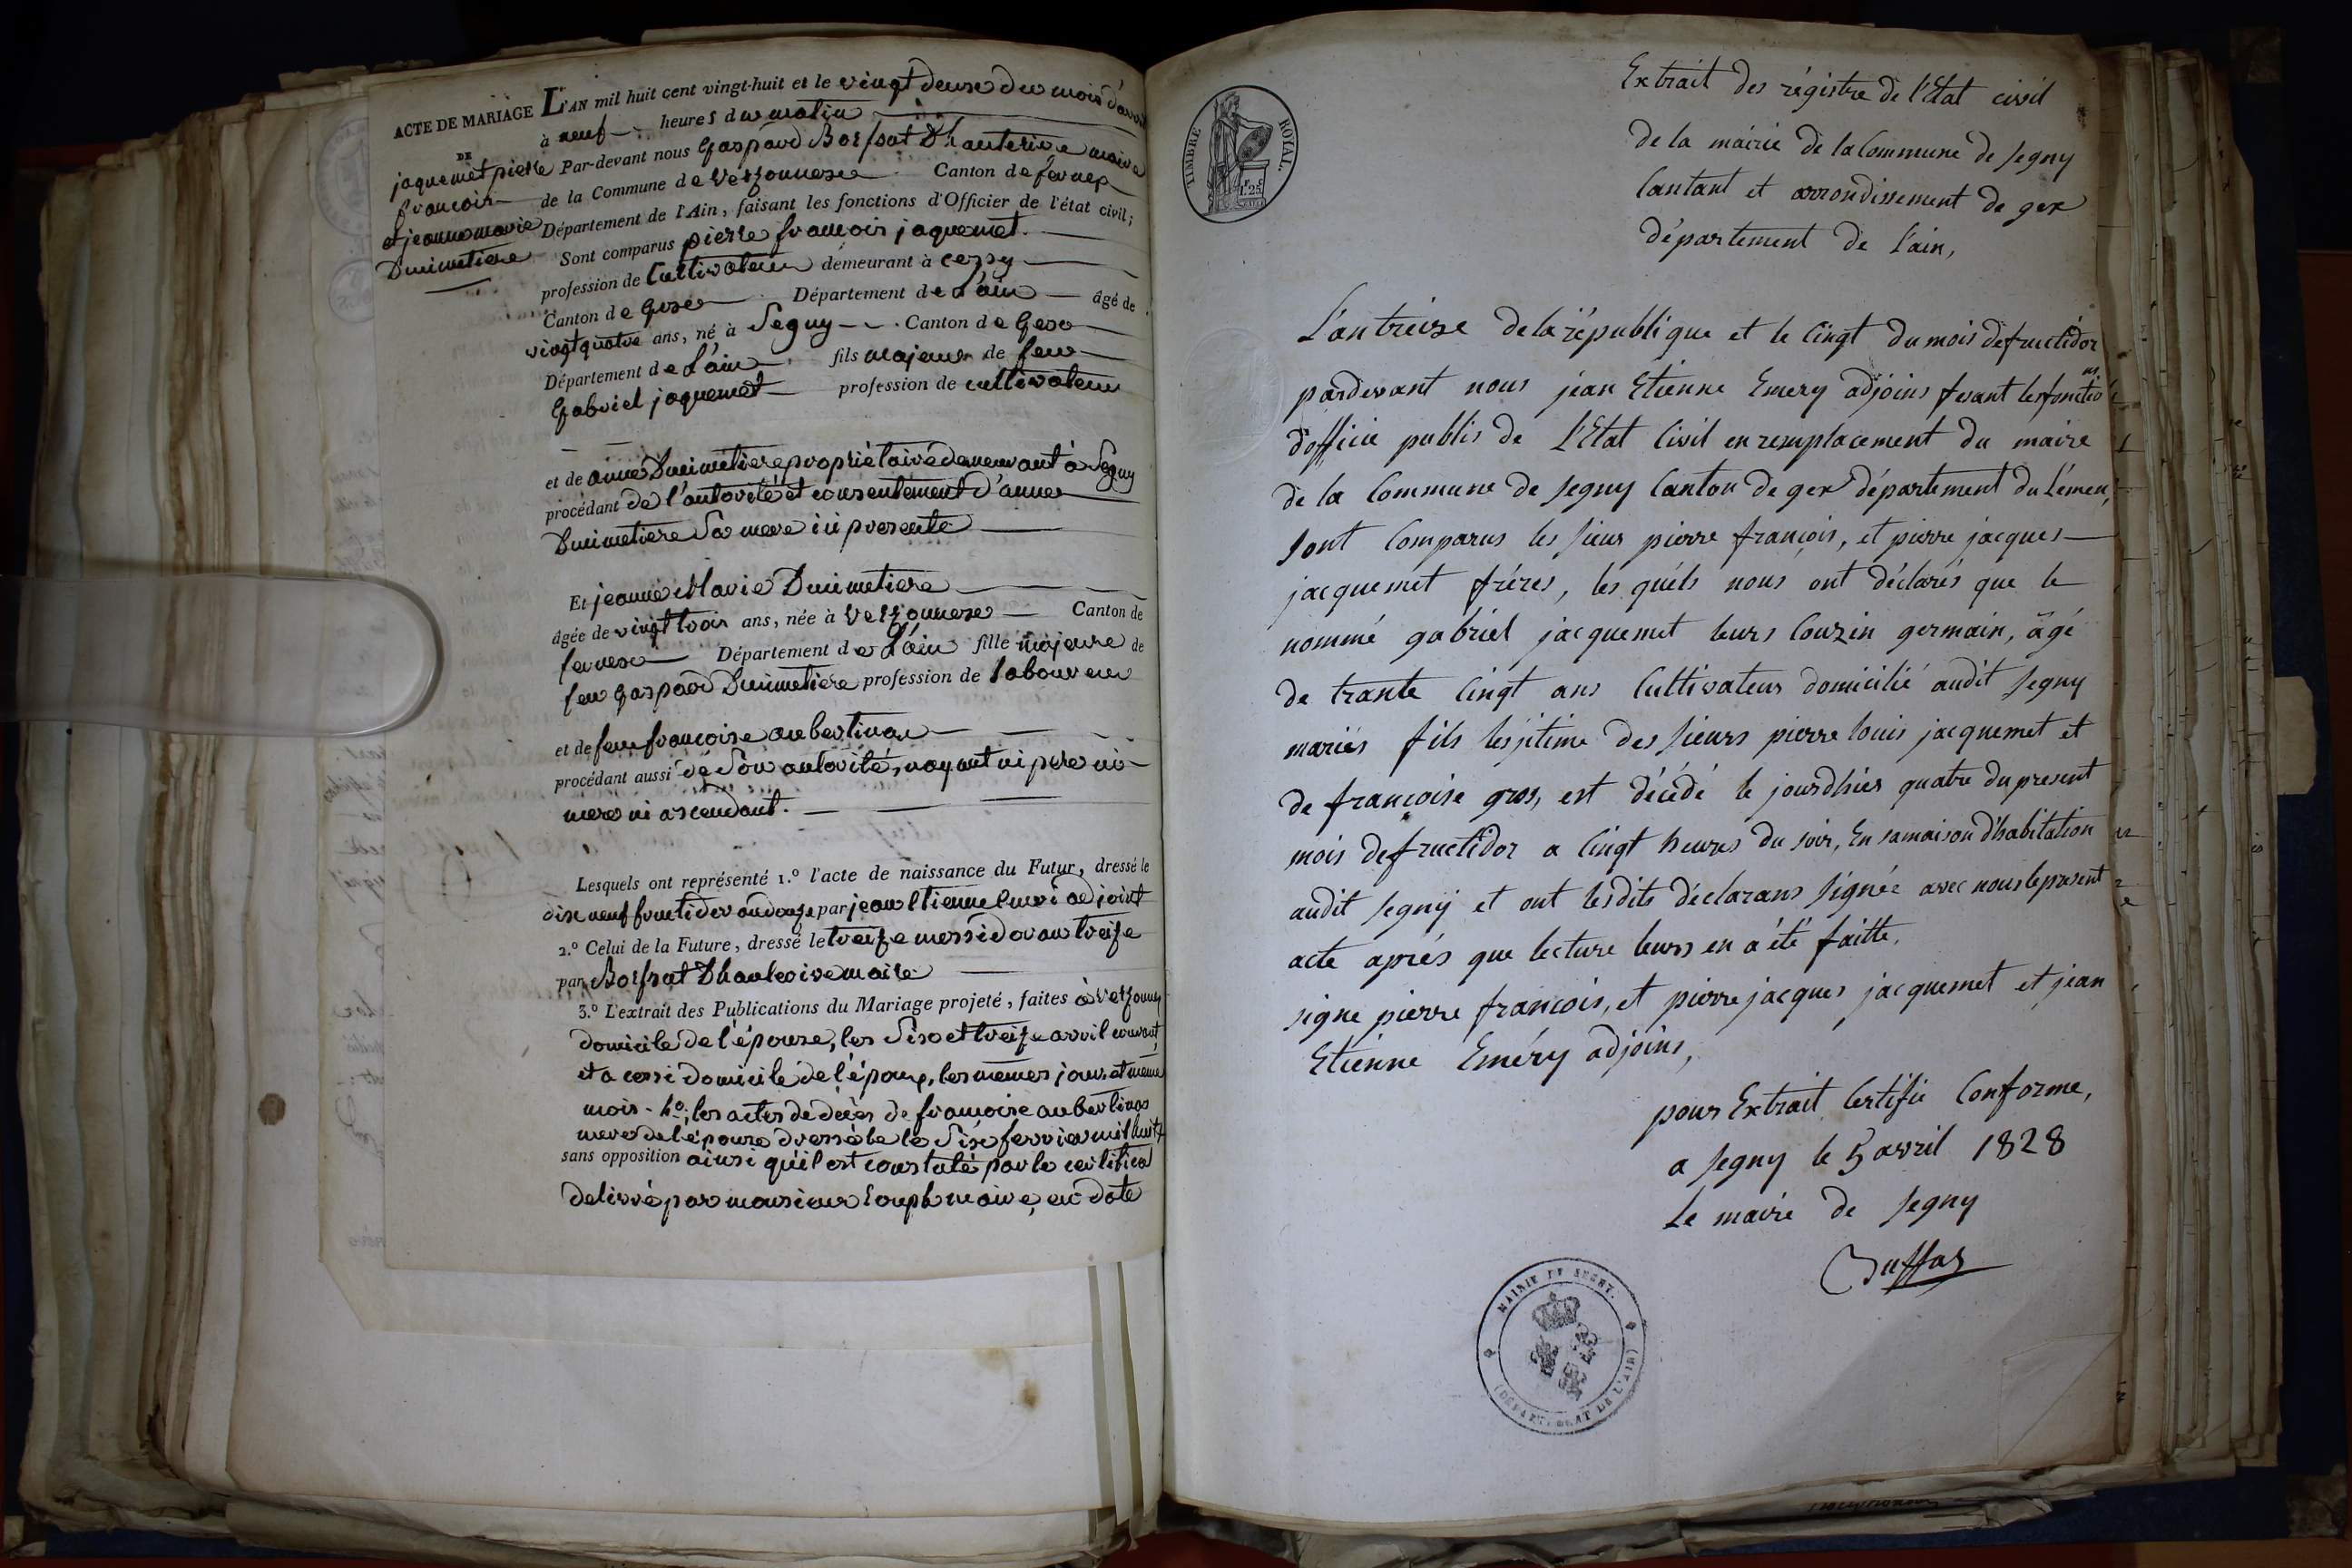 ACTE DE MARIAGE
DE
jaquemet pierre
francois
et jeanne marie
Dumimetiere
L'AN mil huit cent vingt-huit et le vingt deux du mois d'avril
à neuf heures du matin
Par-devant nous Gaspard Borssat Dhauterive maire
de la Commune de Versonnex Canton de fernex
Département de l'Ain, faisant les fonctions d'Officier de l'état civil;
Sont comparus pierre françois jaquemet
profession de Cultivateur demeurant à cessy
Canton de Gex Département de L'ain âgé de
vingt quatre ans, né à Segny Canton de Gex
Département de L'ain fils majeur de feu
Gabriel jaquemet profession de cultivateur
et de anne Dumimetiere propriétaire demeurant à Segny
procédant de l'autorité et consentement d'anne
Dumimetiere Sa mere ici presente
Et jeanne Marie Dumimetiere
âgée de vingt trois ans, née à Versonnex Canton de
fernex Département de L'ain fille majeure de
feu Gaspard Dumimetiere profession de laboureur
et de feue francoise aubertinax
procédant aussi de Son autorité, nayant ni pere ni
mere ni ascendant.
Lesquels ont représenté 1.° l'acte de naissance du Futur, dressé le
dix neuf fructidor an douze par jean Etienne Emeri adjoint
2.° Celui de la Future, dressé le treize messidor an treize
par Borssat Dhauterive maire
3.° L'extrait des Publications du Mariage projeté, faites à Versonnex
domicile de l'épouse, les Six et treize avril courant,
et a cessi domicile de l'époux, les memes jours et meme
mois - 4°. les actes de décès de francoise aubertinax
mere de l'épouse dressé le Six fevrier mil huit
sans opposition ainsi qu'il est constaté par le certificat
delivré par monsieur maire, en date
TIMBRE ROYAL.
1F. 25C
Extrait des régistre de l'Etat civil
de la mairie de la Commune de Segny
Cantant et arrondissement de gex
département de l'ain,
L'an treize de la république et le Cingt du mois de fructidor
pardevant nous jean Etienne Emery adjoins fesant les fonctions
d'officie publis de L'Etat Civil en remplacement du maire
de la Commune de Segny Canton de gex département du Lémen,
Sont Comparus les Sieur pierre françois, et pierre jacques
jacquemet fréres, les quéls nous ont déclarés que le
nommé gabriel jacquemet leurs Couzin germain, âgé
de trante Cingt ans Cultivateur domicilié audit Segny
mariés fils lesjitime des Sieurs pierre louis jacquemet et
de françoise gros, est décédé le jourdhier quatre du present
mois de fructidor a Cingt heures du soir, En sa maison d'habitation
audit Segny et ont lesdits déclarans Signée avec nous le present
acte aprés que lecture leurs en a été faitte,
signe pierre francois, et pierre jacques jacquemet et jean
Etienne Eméry adjoins,
pour Extrait Certifie Conforme,
a Segny le 5 avril 1828
Le maire de Segny
Duffas
MAIRIE DE SEGNY.
(DÉPARTEMENT DE L'AIN)